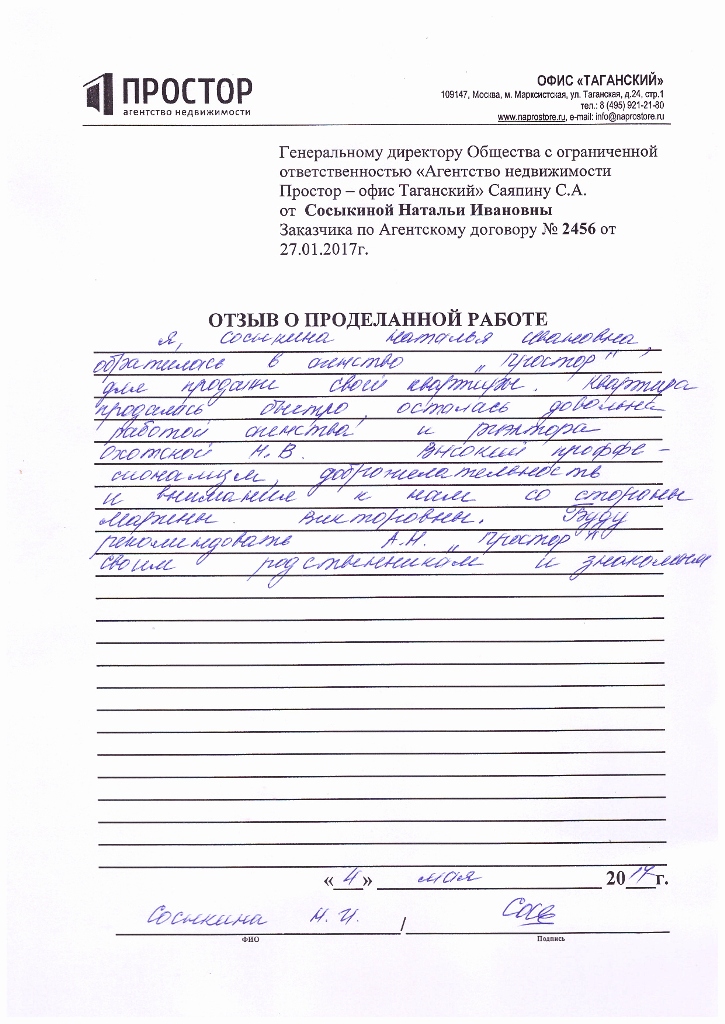 ПРОСТОР
агентство недвижимости
ОФИС «ТАГАНСКИЙ»
109147, Москва, м. Марксистская, ул. Таганская, д.24, стр.1
тел.: 8 (495) 921-21-80
www.naprostore.ru, e-mail: info@naprostore.ru
Генеральному директору Общества с ограниченной
ответственностью «Агентство недвижимости
Простор – офис Таганский» Саяпину С.А.
от Сосыкиной Натальи Ивановны
Заказчика по Агентскому договору № 2456 от
27.01.2017г.
ОТЗЫВ О ПРОДЕЛАННОЙ РАБОТЕ
Я, Сосыкина Наталья Ивановна,
обратилась в агенство „Простор"
для продажи своей квартиры. Квартира
продалась быстро, осталась довольна
работой агенства и риэлтора
Охотской М.В. Высокий проффе-
сионализм, доброжелательность
и внимания к нам со стороны
Марины Викторовны. Буду
рекомендовать А.Н. „Простор"
своим родственникам и знакомым
«4» мая 2017г.
Сосыкина Н.И. /
ФИО Подпись